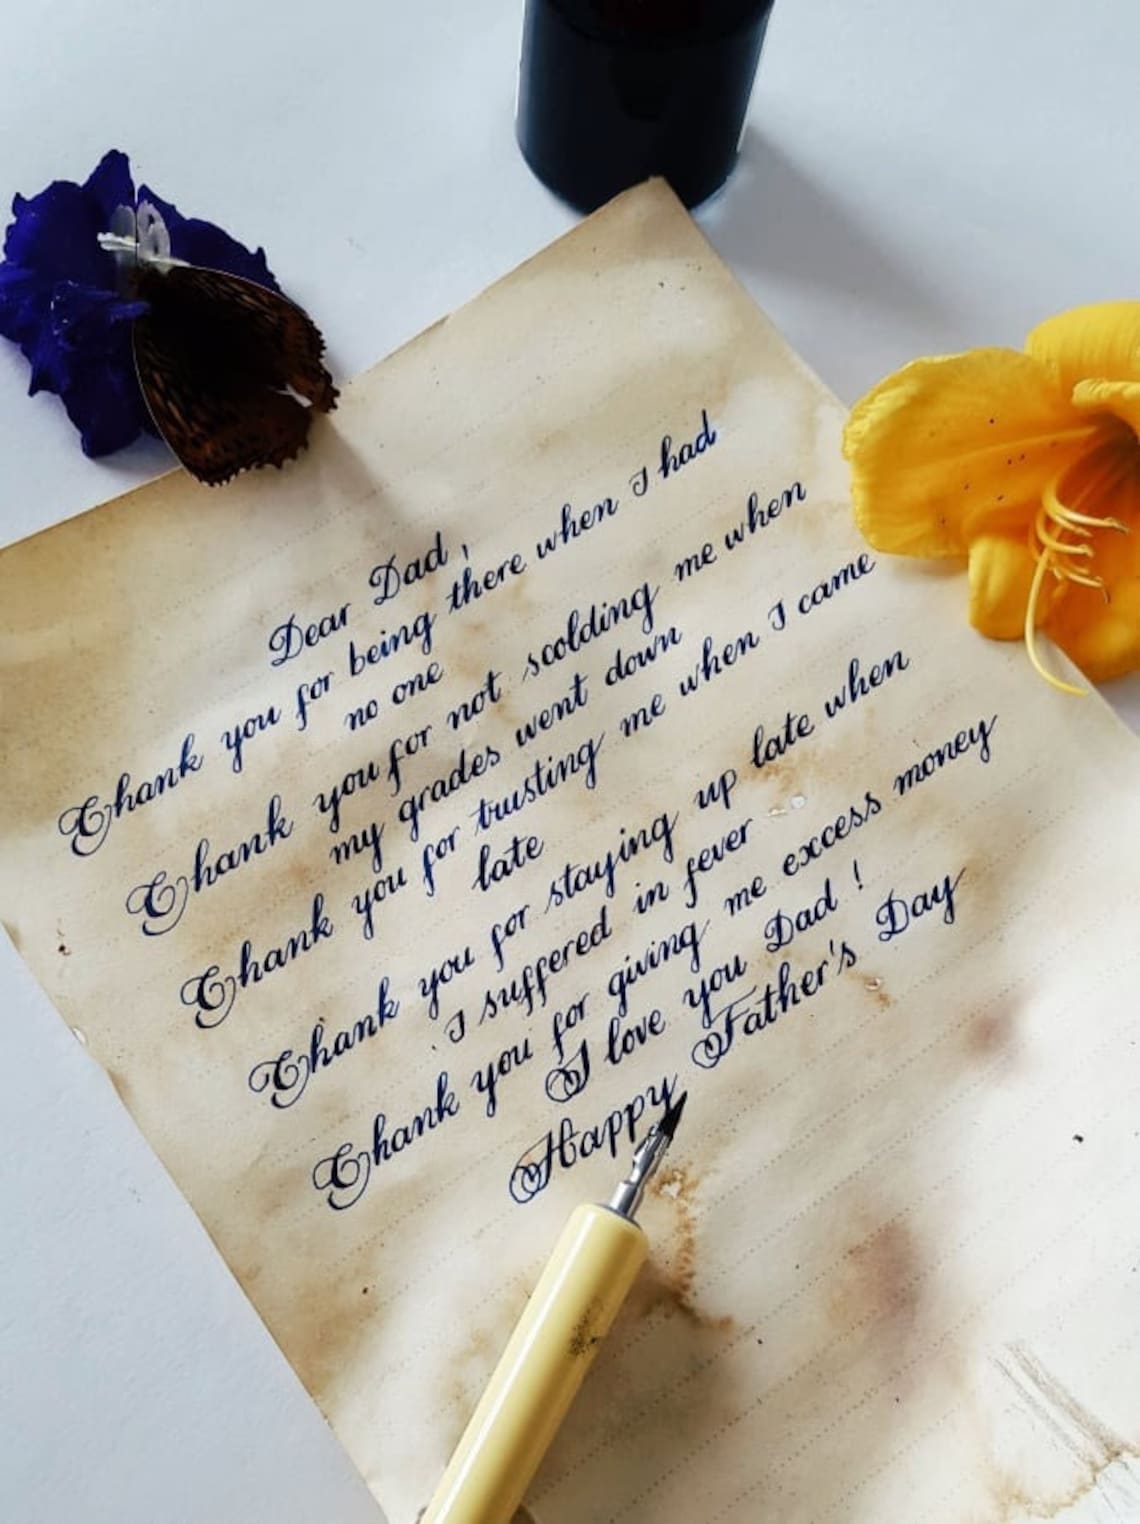 Dear Dad,
Thank you for being there when I had
no one
Thank you for not scolding me when
my grades went down
Thank you for trusting me when I came
late
Thank you for staying up late when
I suffered in fever
Thank you for giving me excess money
I love you Dad!
Happy Father's Day